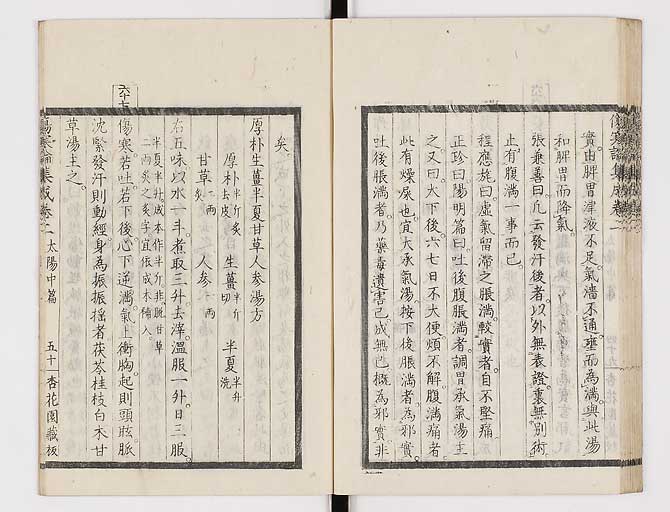 傷寒論集成卷二
實由脾胃津液不足氣濇不通壅而為滿與此湯
和脾胃而降氣
張兼善曰凡云發汗後者以外無表證裏無別術
止有腹滿一事而已
程應旄曰虛氣留滯之脹滿較實者自不堅痛
正珍曰陽明篇曰吐後腹脹滿者調胃承氣湯主
之又曰大下後六七日不大便煩不解腹滿痛者
此有燥屎也宜大承氣湯按下後脹滿者為邪實
吐後脹滿者乃藥毒遺害已成無已概為邪實非
矣
厚朴生薑半夏甘草人參湯方
厚朴半斤炙去皮 生薑半斤切 半夏半升洗
甘草二兩炙 人參一兩
右五味以水一斗煮取三升去滓溫服一升日三服
半夏半升成本作半斤非脫甘草
二兩炙之炙字宜依成本補入
六十七
傷寒若吐若下後心下逆滿氣上衝胸起則頭眩脈
沈緊發汗則動經身為振振搖者茯苓桂枝白朮甘
草湯主之
傷寒論集成卷二 太陽中篇 五十 杏花園藏板